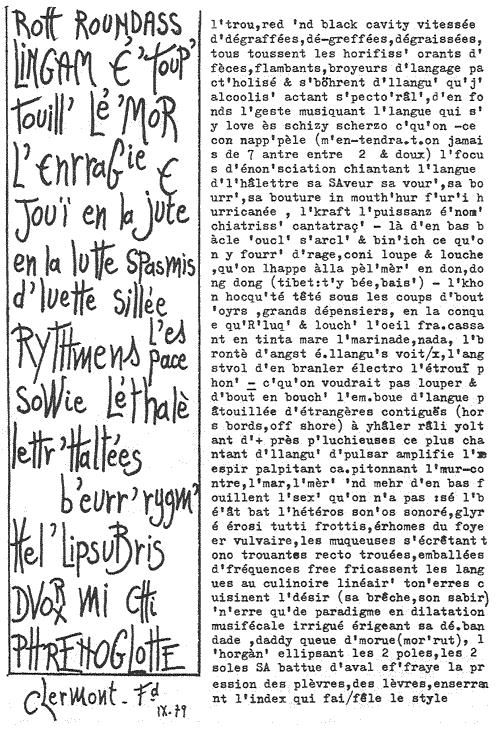 Rott ROUMDASS
LiNGAM É' 'TOUP'
Touill' Lé 'MOR
L'ENRRAGiE É
JOUÏ en la jute
en la lutte SPASMIS
d'luette sillée
RyTHMENS l'es
pace
SOWIE LéTHALè
lettr'Haltées
b'eurr'rygm'
Hel'LIPSUBRIS
DVORX Mi CHi
PHRENOGLOTTE
Clermont-Fd
IX-79
l'trou,red 'nd black cavity vitessée
d'dégraffées,dé-greffées,dégraissées,
tous toussent les horifiss' orants d'
fèces,flambants,broyeurs d'langage pa
ct'holisé & s'böhrent d'llangu' qu'j'
alcoolis' actant s'pecto'râl',d'en fo
nds l'geste musiquant l'langue qui s'
y love ès schizy scherzo c'qu'on -ce
con napp'pèle (m'en-tendra.t.on jamai
s de 7 antre entre 2 & doux) l'focu
s d'énon'sciation chiantant l'langue
d'l'hâlettre sa SAveur sa vour',sa bo
urr',sa bouture in mouth'hur f'ur'i h
urricanée , l'kraft l'puissanz é'nom'
chiatriss' cantatraç' - là d'en bas b
âcle 'oucl' s'arcl' & bin'ich ce qu'o
n y fourr' d'rage,coni loupe & louche
,qu'on lhappe àlla pèl'mèr' en don,do
ng dong (tibet:t'y bée,bais') - l'kho
n hocqu'té têté sous les coups d'bout
'oyrs ,grands dépensiers, en la conqu
e qu'R'luq' & louch' l'oeil fra.cassa
nt en tinta mare l'marinade,nada, l'b
rontè d'angst é.llangu's voit/x,l'ang
stvol d'en branler électro l'étrouï p
hon' - c'qu'on voudrait pas louper &
d'bout en bouch' l'em.boue d'langue p
âtouillée d'étrangères contiguës (hor
s bords,off shore) à yhâler râli yolt
ant d'+ près p'luchieuses ce plus cha
ntant d'llangu' d'pulsar amplifie l'
espir palpitant ca.pitonnant l'mur-co
ntre,l'mar,l'mèr' 'nd mehr d'en bas f
ouillent l'sex' qu'on n'a pas :sé l'b
é'ât bat l'hétéros son'os sonoré,glyr
é érosi tutti frottis,érhomes du foye
er vulvaire,les muqueuses s'écrêtant t
ono trouantes recto trouées,emballées
d'fréquences free fricassent les lang
ues au culinoire linéair' ton'erres c
uisinent l'désir (sa brêche,son sabir)
'n'erre qu'de paradigme en dilatation
musifécale irrigué érigeant sa dé.ban
dade ,daddy queue d'morue(mor'rut), l
'horgàn' ellipsant les 2 poles,les 2
soles SA battue d'aval ef'fraye la pr
ession des plèvres,des lèvres,enserran
nt l'index qui fai/fêle le style